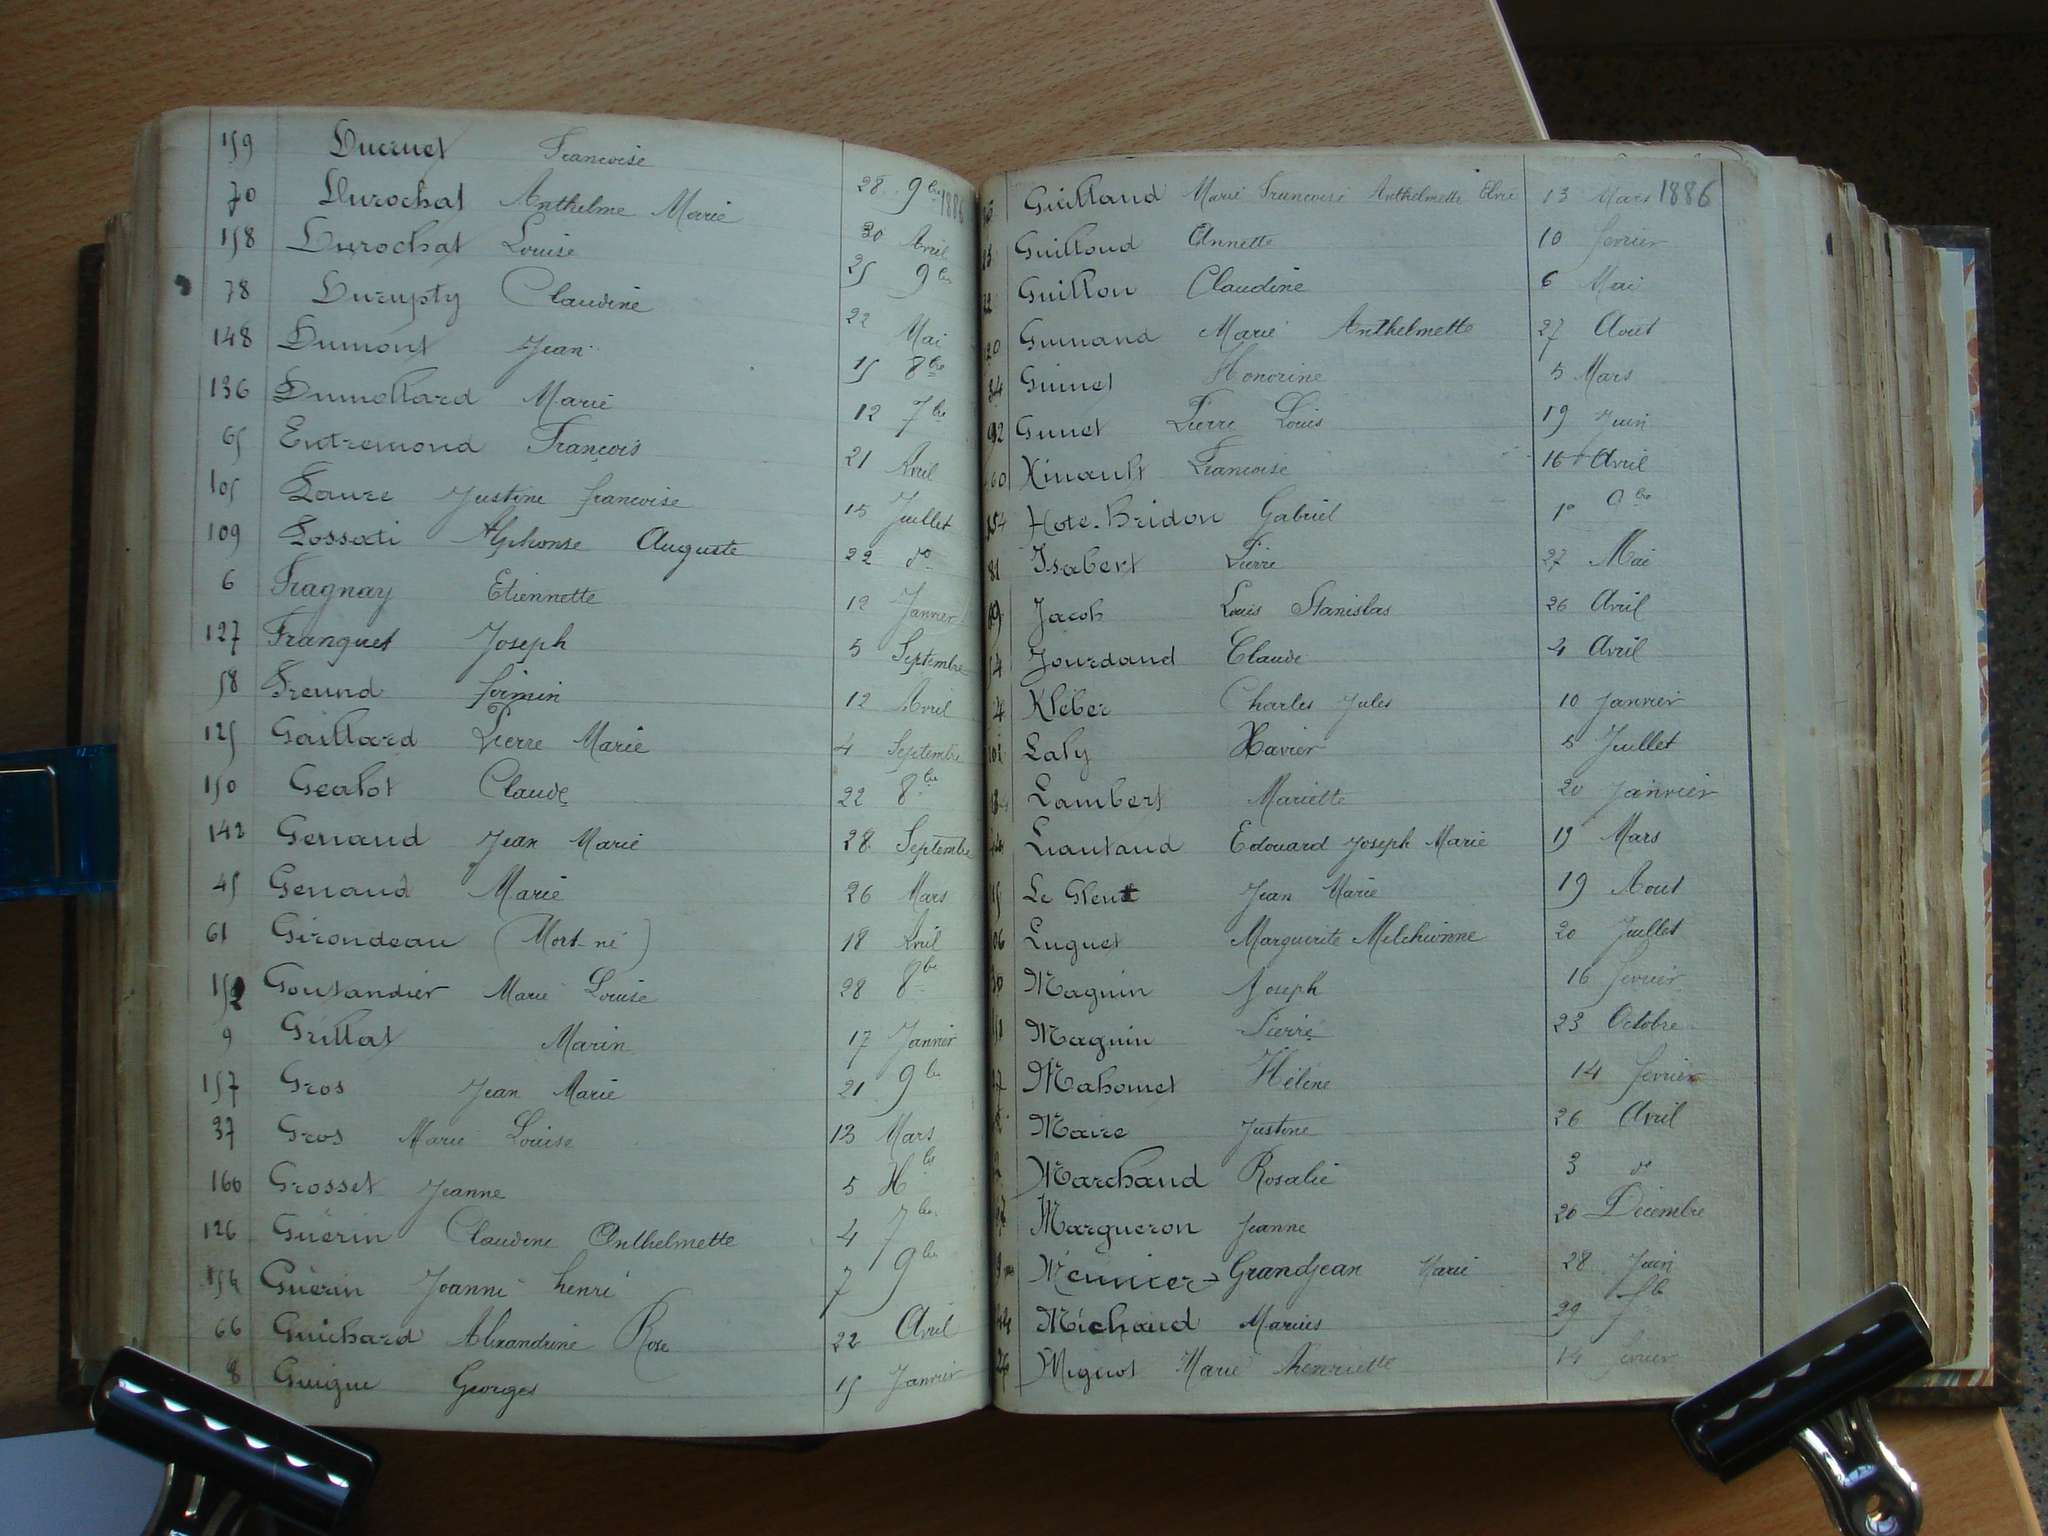 159 Ducruet Francoise 28 9bre 1886
70 Durochat Anthelme Marie 30 Avril
158 Durochat Louise 25 9bre
78 Durupty Claudine 22 Mai
148 Dumont Jean 15 8bre
136 Dumollard Marie 12 7bre
65 Entremond François 21 Avril
105 Faure Justine francoise 15 Juillet
109 Fossati Alphonse Auguste 22 do
6 Fragnay Etiennette 12 Janvier
127 Franquet Joseph 5 Septembre
58 Freund firmin 12 Avril
125 Gaillard Pierre Marie 4 Septembre
150 Gealot Claude 22 8bre
142 Genaud Jean Marie 28 Septembre
45 Genaud Marie 26 Mars
61 Girondeau (Mort-né) 18 Avril
152 Goutandier Marie Louise 28 8bre
9 Grillat Marin 17 Janvier
157 Gros Jean Marie 21 9bre
37 Gros Marie Louise 13 Mars
160 Grosset Jeanne 5 Xbre
126 Guérin Claudine Anthelmette 4 7bre
Guérin Joanni henri 7 9bre
66 Guichard Alexandrine Rose 22 Avril
8 Guigue Georges 15 Janvier
Guilland Marie Francoise Anthelmette 13 Mars 1886
Guilloud Annette 10 fevrier
Guillon Claudine 6 Mai
Guinand Marie Anthelmette 27 Août
34 Guinet Honorine 5 Mars
92 Guinet Pierre Louis 19 Juin
60 Hinault Francoise 16 Avril
154 Hote-Bridon Gabriel 1er 9bre
81 Isabert Pierre 27 Mai
69 Jacob Louis Stanislas 26 Avril
Jourdand Claude 4 Avril
4 Kléber Charles Jules 10 Janvier
101 Laly Xavier 5 Juillet
Lambert Mariette 20 Janvier
Liautaud Edouard Joseph Marie 19 Mars
Le Gleut Jean Marie 19 Aout
06 Luguet Marguerite Melchionne 20 Juillet
30 Maguin Joseph 16 fevrier
51 Maguin Pierre 23 Octobre
27 Mahomet Hélène 14 fevrier
Maire Justine 26 Avril
Marchand Rosalie 3 do
Margueron Jeanne 20 Décembre
Meunier-Grandjean Marie 28 Juin
Michaud Marius 29
26 Mignot Marie henriette 14 fevrier